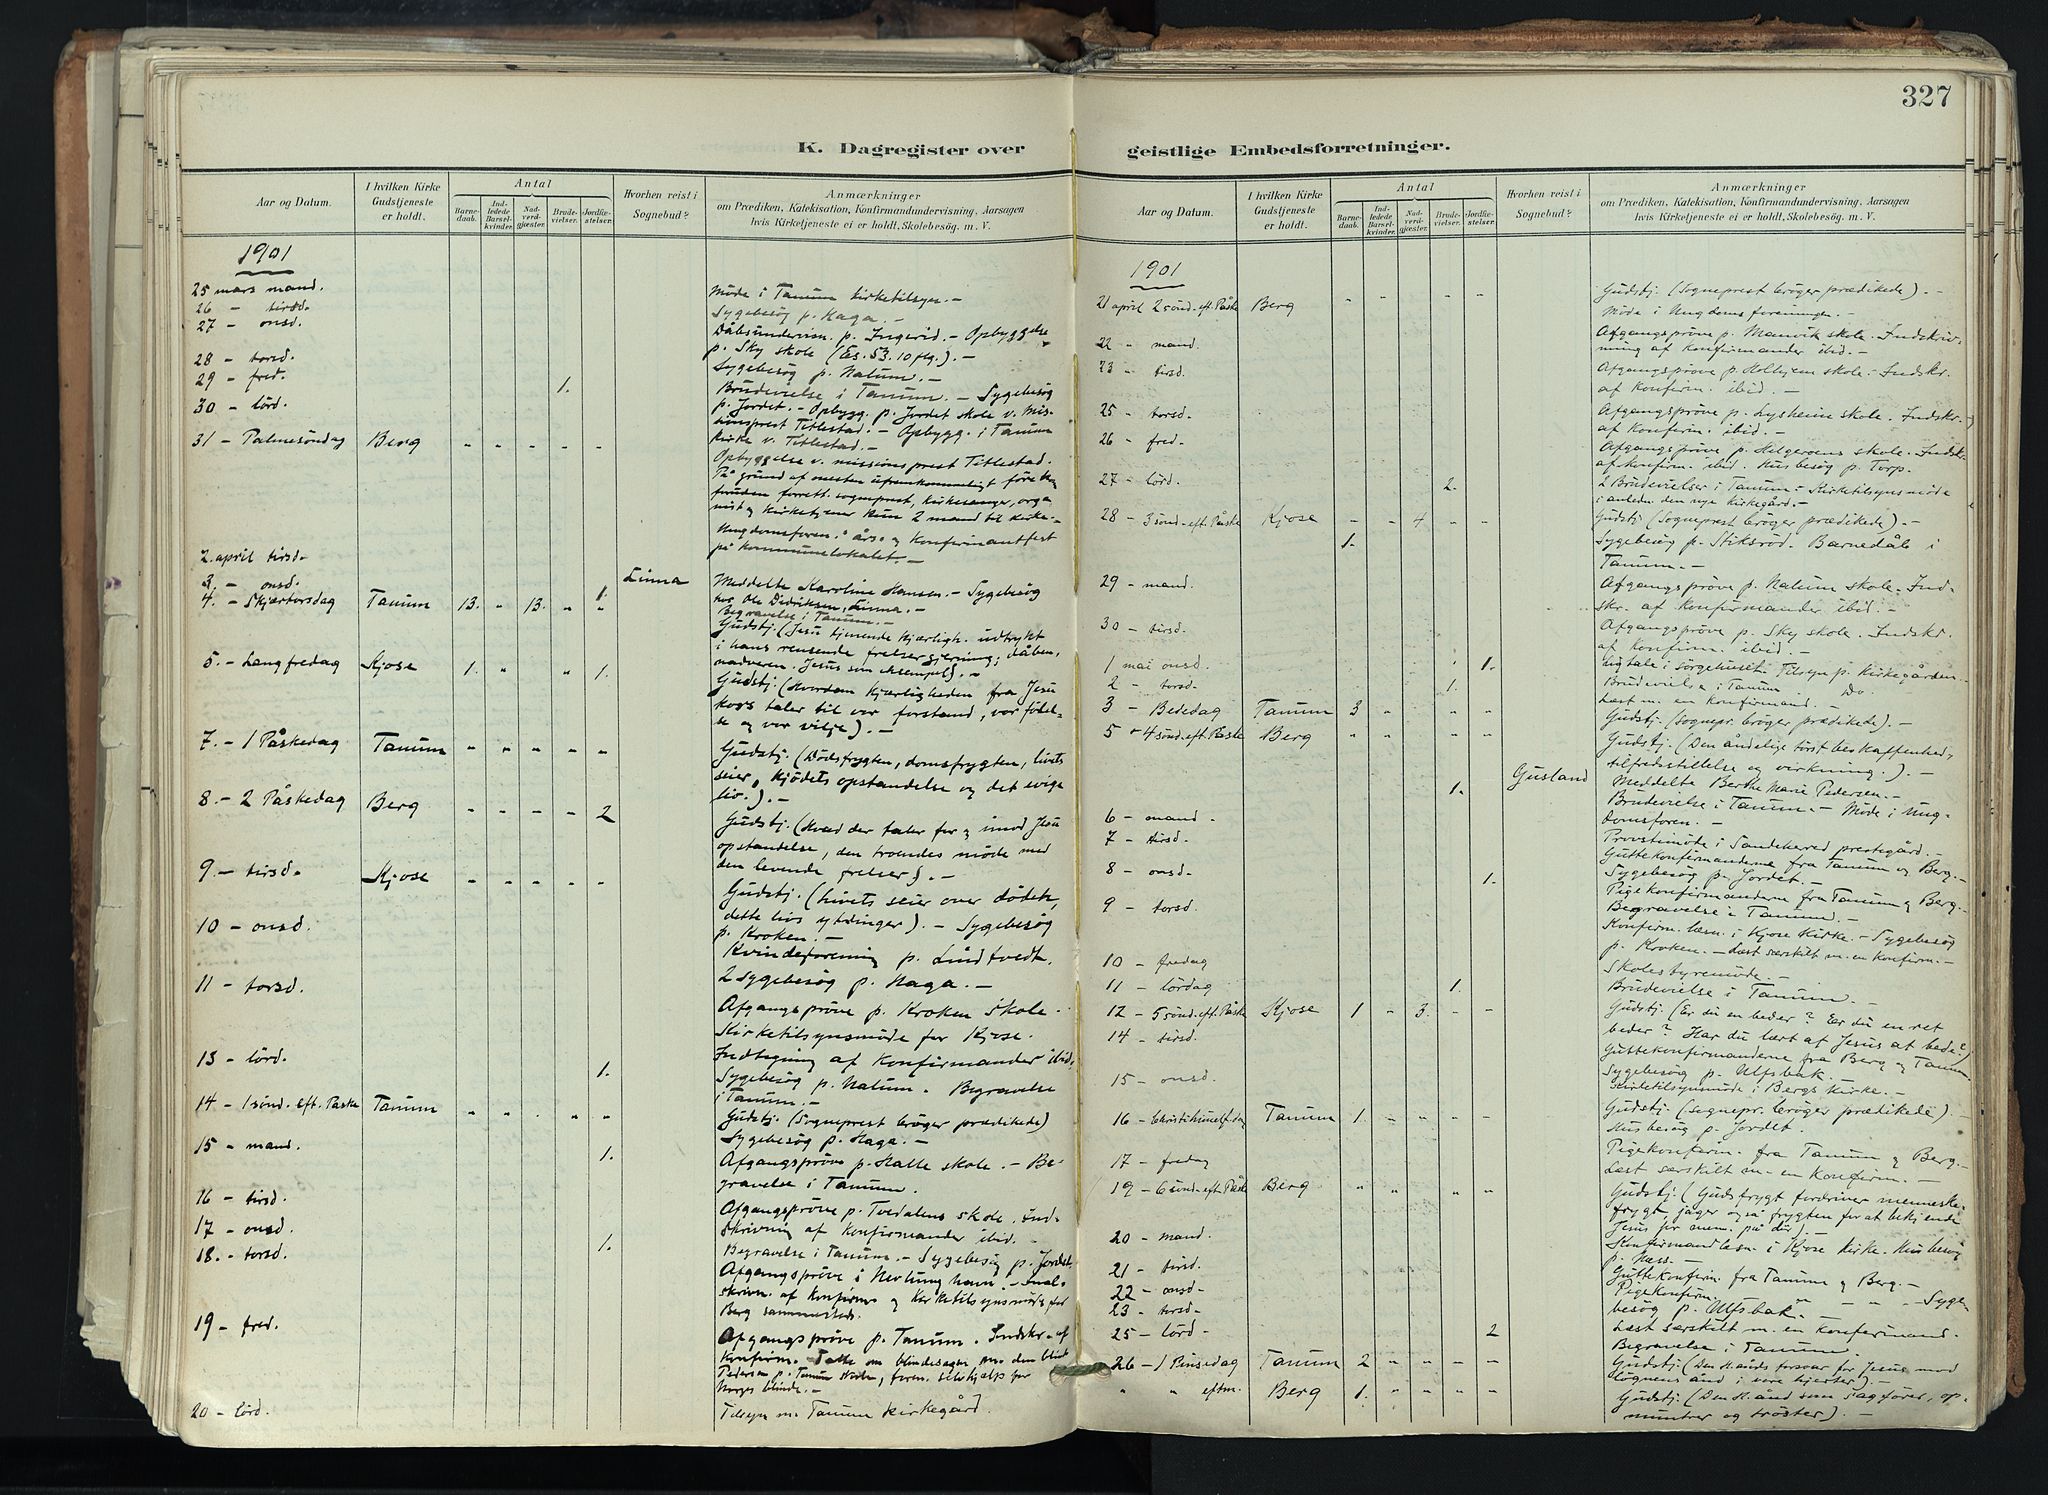 327
K. Dagregister over geistlige Embedsforretninger.
Aar og Datum.
I hvilken Kirke Gudstjeneste er holdt.
Antal
Barnedaab.
Indledede Barselkvinder.
Nadverdgjæster.
Brudevielser.
Jordfæstelser.
Hvorhen reist i Sognebud?
Anmærkninger
om Prædiken, Katekisation, Konfirmandundervisning, Aarsagen
hvis Kirketjeneste ei er holdt, Skolebesøg. m. V.
1901
25 mars mand. Møde i Tanum Kirketilsyn. –
26 – tirsd. Sygebesøg p. Haga. –
27 – onsd. Dåbsundervisn. p. Ingerid. – Opbyggelse
p. Sky skole (Es. 53. 10 flg.). –
28 – torsd. Sygebesøg p. Nalum. –
29 – fred. 1. Brudevielse i Tanum. – Sygebesøg
30 – lörd. p. Jordet. – Opbygg. p. Jordet skole v. Mis-
sionsprest Titlestad. – Opbygg. i Tanum
31 – Palmesöndag Berg " " " " " Kirke v. Titlestad. –
Opbyggelse v. missionsprest Titlestad.
På grund af næsten ufremkommeligt före
forrett. sogneprest, kirkesanger, orga-
nist og kirketjener kun 2 mand til kirke –
2. april tirsd. Ungdomsforen.s års- og Konfirmantfest
på Kommunelokalet. –
3. – onsd. Linna Meddelte Karoline Hansen. – Sygebesøg
hos Ole Didriksen, Linna. –
1. Begravelse i Tanum. –
4. – Skjærtorsdag Tanum 13. " 13. " " Gudstj. (Jesu tjenende kjærligh. udtrykt
i hans rensende frelsergjerning; dåben,
nadveren. Jesus som eksempel). –
5. – Langfredag Kjose 1. " " 1. Gudstj. (Hvordan kjærligheden fra Jesu
kors taler til vor forstand, vor fölel-
se og vor vilje). –
7. – 1 Påskedag Tanum " " " " " Gudstj. (Dödsfrygten, domsfrygten, livets
seier, kjödets opstandelse og det evige
liv.). –
8. – 2 Påskedag Berg " " " " 2 Gudstj. (Hvad der taler for og imod Jesu
opstandelse, den troendes møde med
den levende frelser). –
9. – tirsd. Kjose " " " " " Gudstj. (Livets seier over döden,
dette livs ytringer). – Sygebesøg
p. Kroken. –
10 – onsd. Kvindeforening p. Lindtvedt.
2 sygebesøg p. Haga. –
11 – torsd. Afgangsprøve p. Kroken skole.
Kirketilsynsmøde for Kjose.
Indtegning af Konfirmander ibid.
13 – lörd. 1. Sygebesøg p. Nalum. Begravelse
i Tanum. –
14 – 1 sönd. eft. Påske Tanum " " " " Gudstj. (Sogneprest Cröger prædikede)
Sygebesøg p. Haga. –
15 – mand. 1. Afgangsprøve p. Halle skole. – Be-
gravelse i Tanum.
16 – tirsd. Afgangsprøve p. Tvedalens skole. Ind-
17 – onsd. skrivning af Konfirmander ibid. –
18. – torsd. 1. Begravelse i Tanum. – Sygebesøg p. Jordet.
Afgangsprøve i Nevlunghavn. – Ind-
skrivn. af konfirm. og Kirketilsynsmøde for
Berg sammesteds.
19 – fred. Afgangsprøve p. Tanum. Indskr. af
Konfirm. Tale om blindesagen m. den blinde
Pedersen p. Tanum skole, foren. selvhjælp for
Norges blinde. –
20 – lörd. Tilsyn m. Tanum Kirkegård.
1901
21 april 2 sönd. eft. Påske Berg " " " " Gudstj. (Sogneprest Cröger prædikede). –
Møde i Ungdomsforeningen. –
22 – mand. Afgangsprøve p. Manvik skole. Indskriv-
ning af Konfirmander ibid. –
23 – tirsd. Afgangsprøve p. Holhjem skole. – Indskr.
af Konfirm. ibid. –
25 – torsd. Afgangsprøve p. Lysheim skole. Indskr.
af Konfirm. ibid. –
26 – fred. Afgangsprøve p. Helgeroens skole. Indskr.
af Konfirm. ibid. Husbesøg p. Torp.
27 – lörd. 2. 2 Brudevielser i Tanum. – Kirketilsynsmöde
i anledn. den nye kirkegård. –
28 – 3 sönd. eft. Påske Kjose " " 4 " " Gudstj. (Sogneprest Cröger prædikede). –
1. Sygebesøg p. Stiksröd. Barnedåb i
Tanum. –
29 – mand. Afgangsprøve p. Nalum skole. Ind-
skr. af Konfirmander ibid. –
30 – tirsd. Afgangsprøve p. Sky skole. Indskr.
af Konfirm. ibid. –
1 mai onsd. 1. Ligtale i sörgehuset. Tilsyn p. Kirkegården.
2 – torsd. 1. Brudevielse i Tanum. Do
Læst m. en Konfirmand. –
3 – Bededag Tanum 3 " " " " Gudstj. (Sognepr. Cröger prædikede). –
5 – 4 sönd. eft. Påske Berg " " " " Gudstj. (Den åndelige törst beskaffenhed,
tilfredsstillelse og virkning.). –
Gusland Meddelte Berthe Marie Pedersen. –
1. Brudevielse i Tanum. – Møde i Ung-
domsforen. –
6 – mand.
7 – tirsd. Provstimöte i Sandeherred prestegård. –
Guttekonfirmanderne fra Tanum og Berg. –
8 – onsd. 1. Sygebesøg p. Jordet. –
Pigekonfirmanderne fra Tanum og Berg. –
Begravelse i Tanum. –
9 – torsd. Konfirm. læsn. i Kjose Kirke. – Sygebesøg
p. Kroken. – Læst særskilt m. en Konfirm. –
10 – fredag Skolestyremöde. –
11 – lördag 1. Brudevielse i Tanum. –
12 – 5 sönd. eft. Påske Kjose 1 " 3. " " Gudstj. (Er du en beder? Er du en ret
beder? Har du lært af Jesus at bede?)
14 – tirsd. Guttekonfirmanderne fra Berg og Tanum.
Sygebesøg p. Ulfsbak.
15 – onsd. Kirketilsynsmøde i Bergs Kirke. –
16 – Christi himmelf.dag Tanum 1. " " " " Gudstj. (Sognepr. Cröger prædikede) –
Husbesøg p. Jordet.
17 – fredag Pigekonfirm. fra Tanum og Berg. –
Læst særskilt m. en Konfirm. –
19 – 6 sönd. eft. Påske Berg " " " " Gudstj. (Gudsfrygt fordriver menneske-
frygt, jager også frygten for at bekjende
Jesus for men. på dör)
20 – mand. Konfirmandlæsn. i Kjose Kirke. Husbesøg
p. Næss. –
21 – tirsd. Guttekonfirm. fra Tanum og Berg. –
22 – onsd. Pigekonfirm. " – " – Syge-
23 – torsd. besøg p. Ulfsbak.
25 – lörd. 2 Læst særskilt m. en Konfirmand.
Begravelse i Tanum.
26 – 1 Pinsedag Tanum 2 " " " " Gudstj. (Den H. ånds forsvar for Jesus mod
lögnens ånd i vore hjerter). –
" " eftm. Berg 1. " " " " Gudstj. (Den H. ånd som sagförer, op-
muntrer og tröster). –